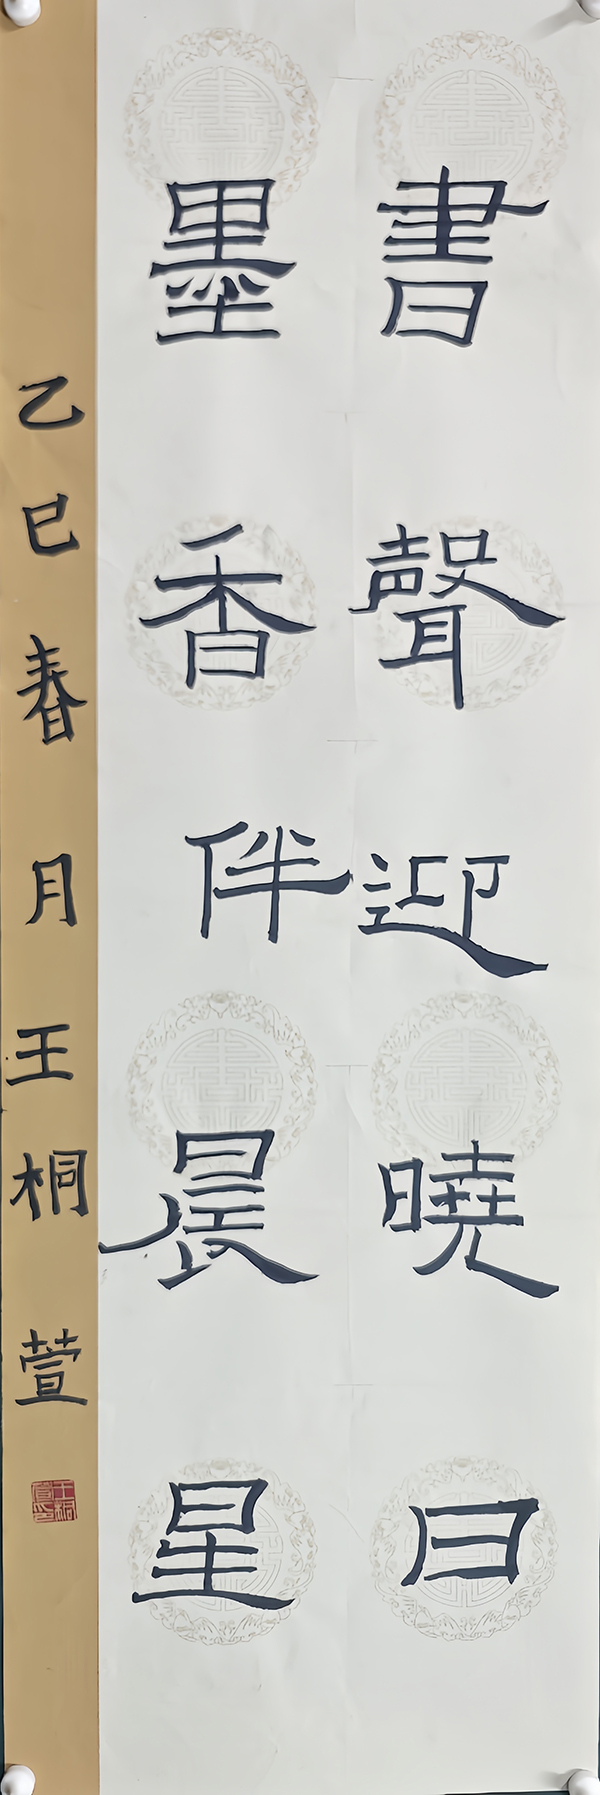 書聲迎曉日
墨香伴晨星
乙巳春月王桐萱